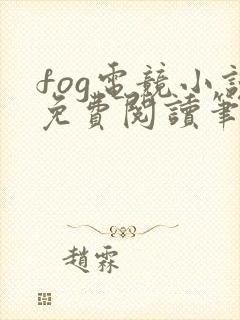 fog電競小説
免費閱讀筆
趙霖